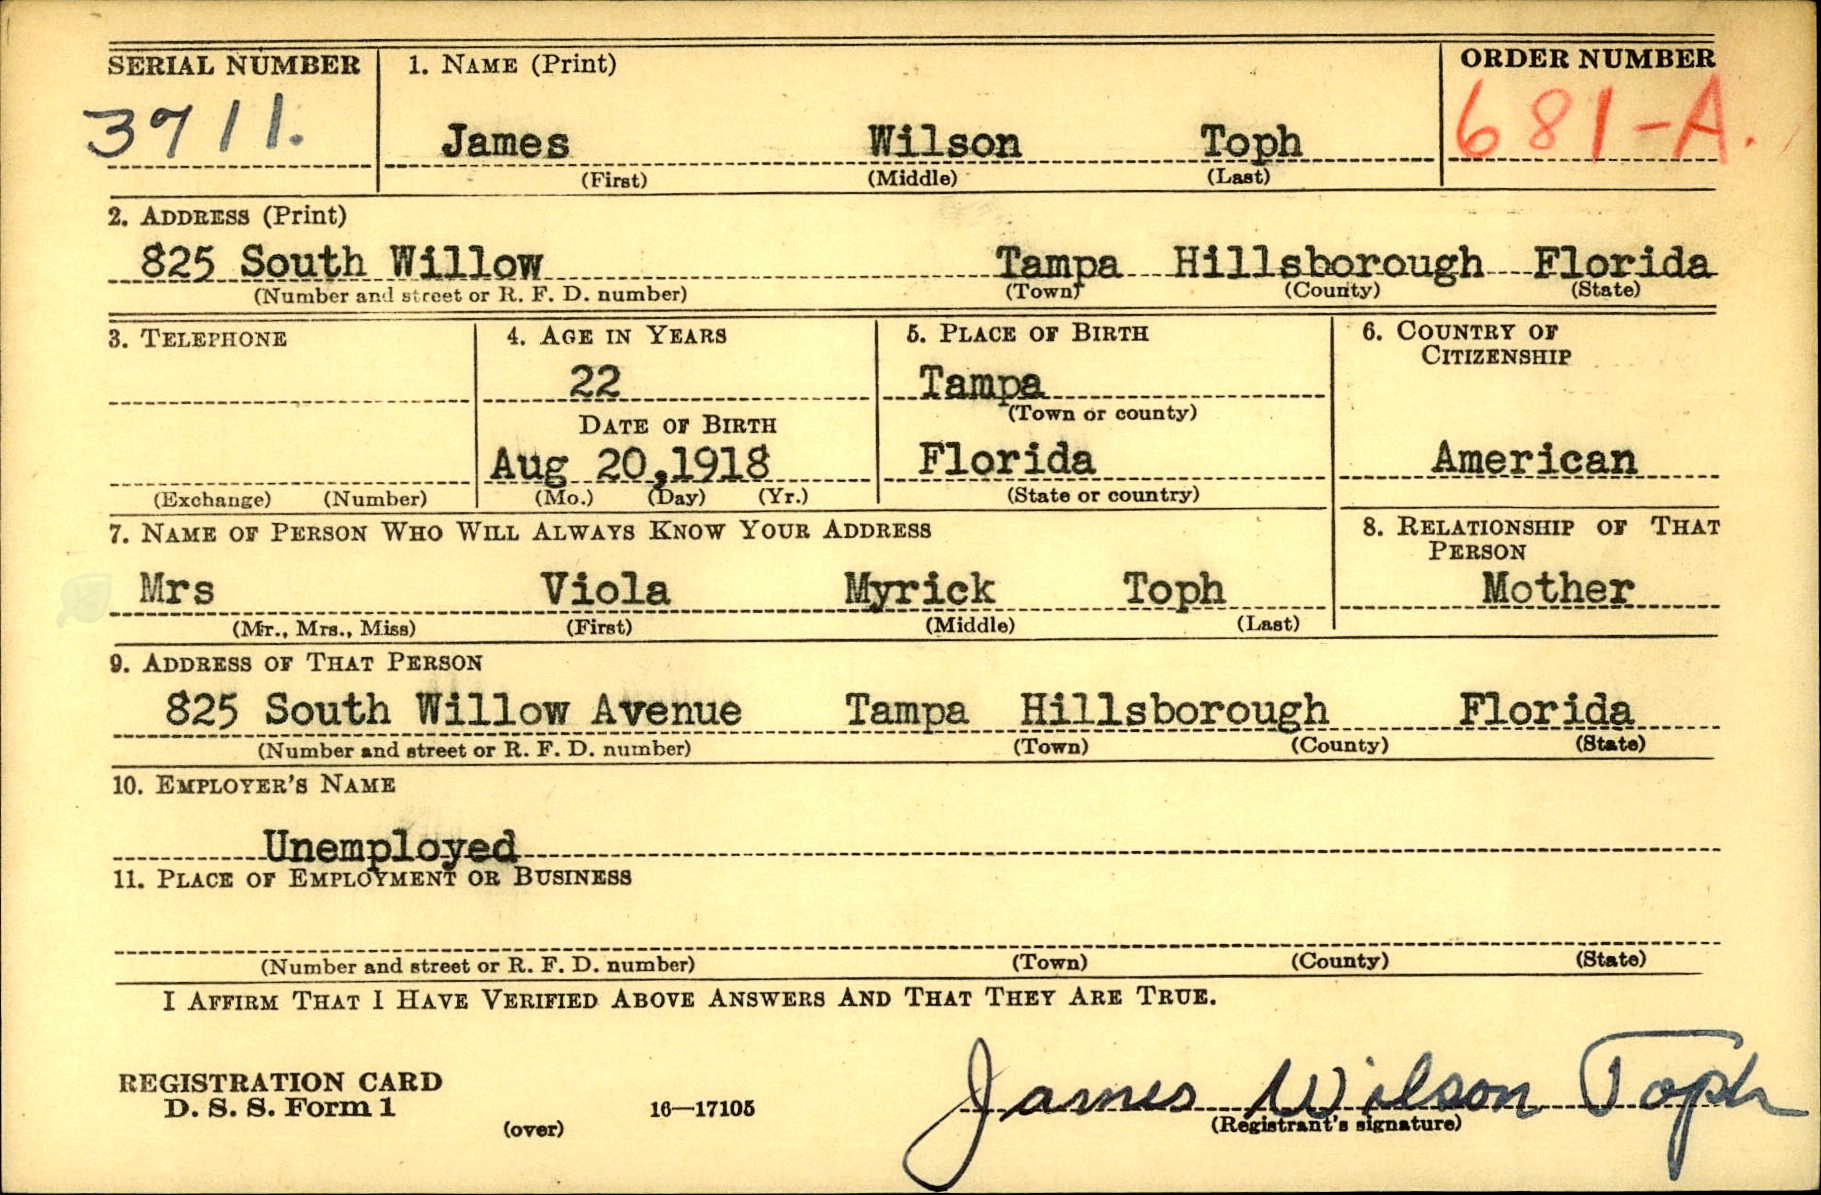 SERIAL NUMBER 1. NAME (Print) ORDER NUMBER
3711. James Wilson Toph 681-A.
(First) (Middle) (Last)
2. ADDRESS (Print)
825 South Willow Tampa Hillsborough Florida
(Number and street or R. F. D. number) (Town) (County) (State)
3. TELEPHONE 4. AGE IN YEARS 5. PLACE OF BIRTH 6. COUNTRY OF
CITIZENSHIP
22 Tampa
(Town or county)
DATE OF BIRTH
Aug 20,1918 Florida American
(Exchange) (Number) (Mo.) (Day) (Yr.) (State or country)
7. NAME OF PERSON WHO WILL ALWAYS KNOW YOUR ADDRESS 8. RELATIONSHIP OF THAT
PERSON
Mrs Viola Myrick Toph Mother
(Mr., Mrs., Miss) (First) (Middle) (Last)
9. ADDRESS OF THAT PERSON
825 South Willow Avenue Tampa Hillsborough Florida
(Number and street or R. F. D. number) (Town) (County) (State)
10. EMPLOYER'S NAME
Unemployed
11. PLACE OF EMPLOYMENT OR BUSINESS
(Number and street or R. F. D. number) (Town) (County) (State)
I AFFIRM THAT I HAVE VERIFIED ABOVE ANSWERS AND THAT THEY ARE TRUE.
REGISTRATION CARD
D. S. S. Form 1 16—17105 James Wilson Toph
(over) (Registrant's signature)